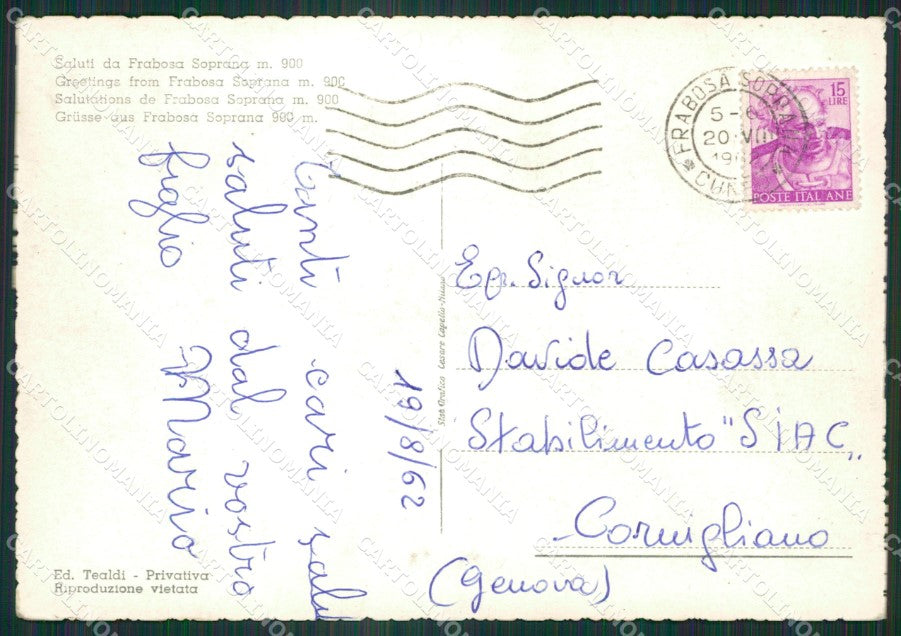 Saluti da Frabosa Soprana m. 900
Greetings from Frabosa Soprana m. 900
Salutations de Frabosa Soprana m. 900
Grüsse aus Frabosa Soprana 900 m.
FRABOSA SOPRANA
5-6
20 VIII
19
CUNEO
15
LIRE
POSTE ITALIANE
19/8/62
Tanti cari salu
saluti dal vostro
figlio Mario
Stab. Grafico Cesare Capello - Milano
Egr. Signor
Davide Casassa
Stabilimento "SIAC"
Cornigliano
(Genova)
Ed. Tealdi - Privativa
Riproduzione vietata
CARTOLINOMANIA